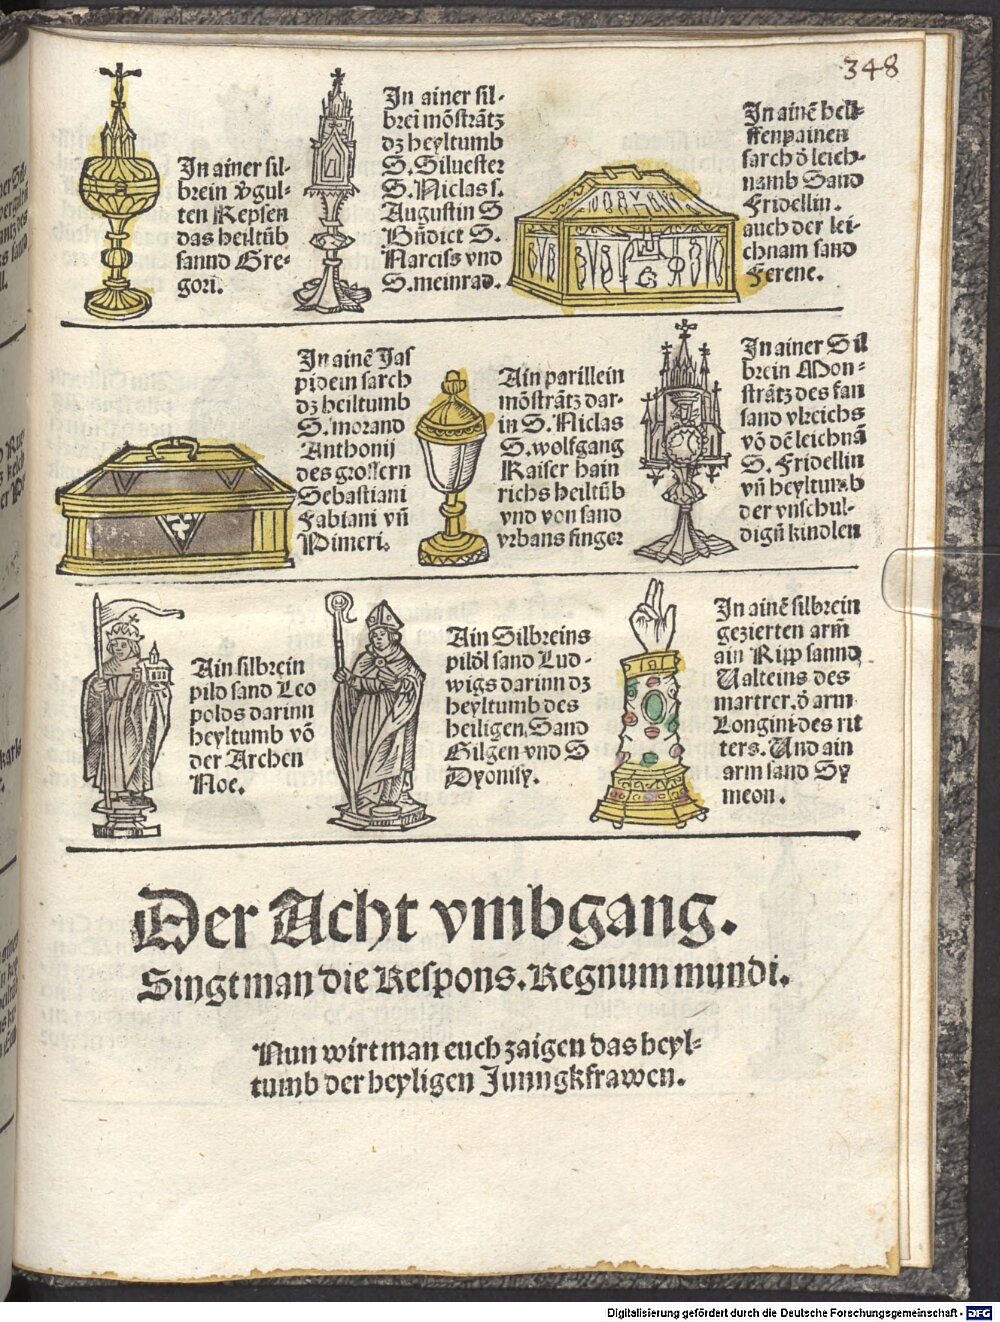 348
In ainer sil-
brein v̈gul-
ten Kepsen
das heiltũb
sannd Gre-
gori.
In ainer sil-
brei mõstrãtz
dz heyltumb
S. Siluester
S. Niclas s.
Augustin S
Bñdict S.
Narciss vnd
S. meinrad.
In ainẽ helf-
ffenpainen
sarch õ leich-
namb Sand
Fridellin.
auch der lei-
chnam sand
Serene.
In ainẽ Jas
pidein sarch
dz heiltumb
S. morand
Anthonij
des grossern
Sebastiani
Fabiani vñ
Pimeri.
Ain parillein
mõstrãtz dar-
in S. Niclas
S. wolfgang
Kaiser hain
richs heiltũb
vnd von sand
vrbans finger
In ainer Sil
brein Mon-
strãtz des fan
sand vlreichs
võ dẽ leichnã
S. Fridellin
vñ heyltumb
der vnschul-
digñ kindlen
Ain silbrein
pild sand Leo
polds darinn
heyltumb võ
der Archen
Noe.
Ain Silbreins
pildl sand Lud-
wigs darinn dz
heyltumb des
heiligen Sand
Gilgen vnd S
Dyonisy.
In ainẽ silbrein
gezierten arm̃
ain Ripp sannd
Valteins des
martrer. õ arm
Longini des rit
ters. Und ain
arm sand Sy
meon.
Der Acht vmbgang.
Singt man die Respons. Regnum mundi.
Nun wirt man euch zaigen das heyl-
tumb der heyligen Junngkfrawen.
Digitalisierung gefördert durch die Deutsche Forschungsgemeinschaft - DFG